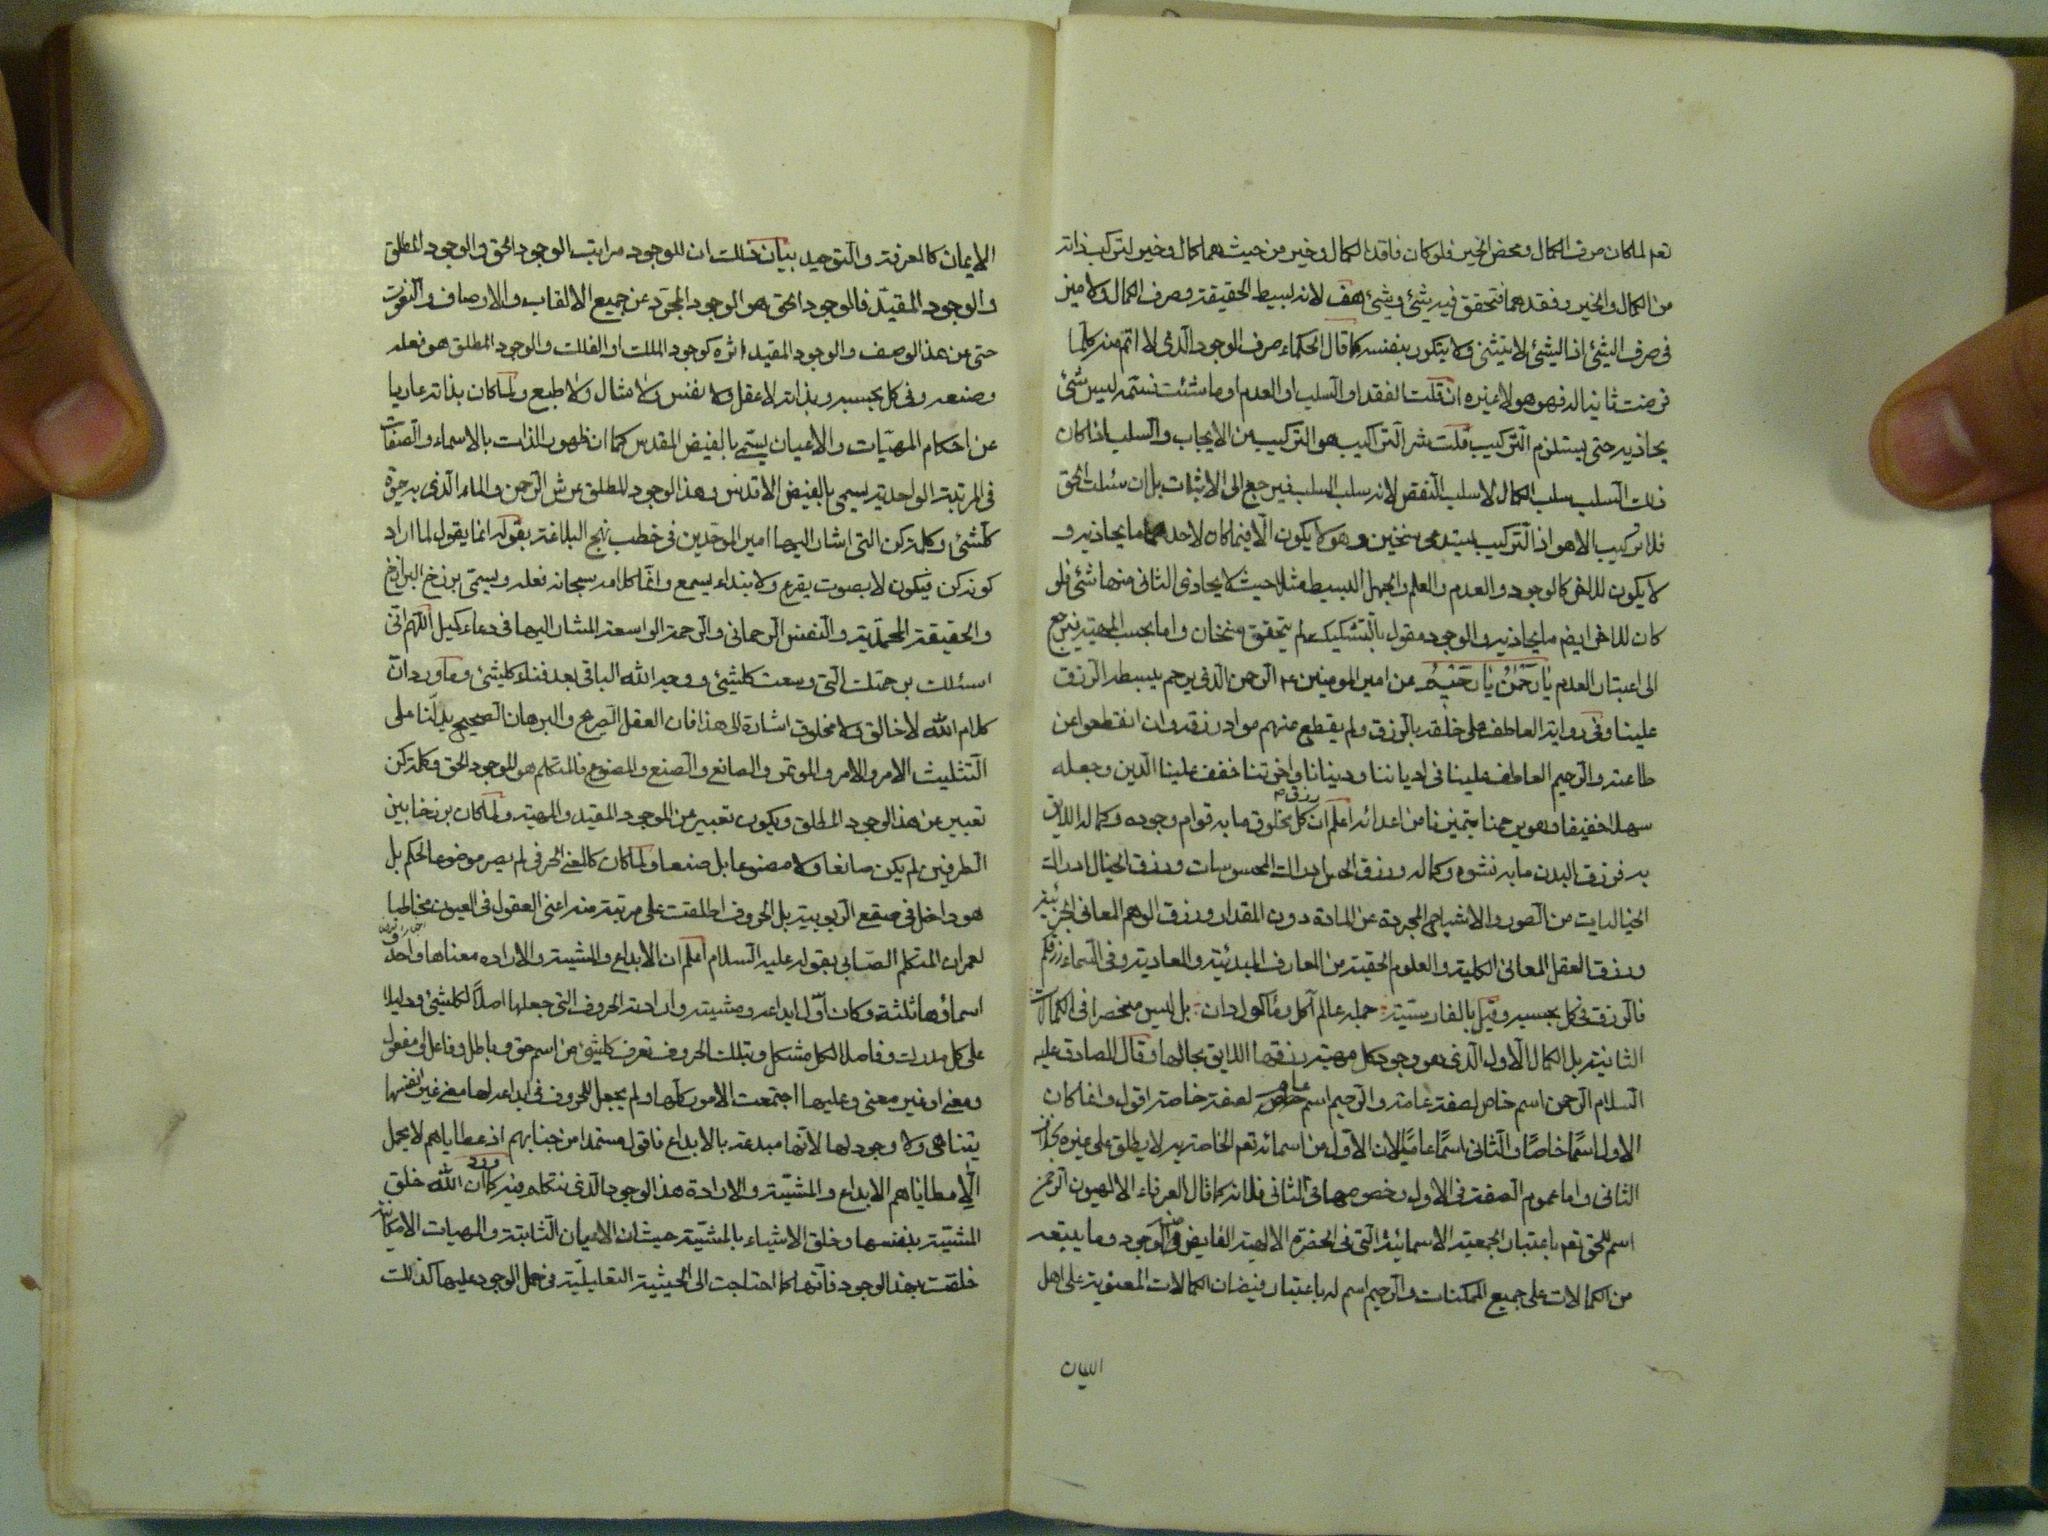 تعم لما كان صرف الكمال ومحض الخير فلو كان فاقدا لكمال وخير من حيث هما كمال وخير لتركب ذاته
من الكمال والخير وفقدهما فتحقق فيه شئ وشئ هف لانه بسيط الحقيقة وصرف الكمال ولا ميز
فى صرف الشئ اذ الشئ لا يتثنى ولا يتكرر بنفسه كما قال الحكماء صرف الوجود الّذى لا اتم منه كلّما
فرضت ثانيا له فهو هو لا غيره ان قلت الفقد او السلب او العدم او ما شئت فسمّه ليس شئ
يحاذيه حتى يستلزم التركيب قلت شر التراكيب هو التركيب من الايجاب والسلب اذا كان
ذلك السلب سلب الكمال لا سلب النقص لانه سلب السلب فيرجع الى الاثبات بل ان سئلت الحق
فلا تركيب الا هو اذ التركيب يستدعى سنخين وهو لا يكون الّا فيما كان لاحدهما ما يحاذيه و
لا يكون للاخر كالوجود والعدم والعلم والجهل البسيط مثلا حيث لا يحاذى الثانى منهما شئ فلو
كان للاخر ايضم ما يحاذيه والوجود مقول بالتشكيك لم يتحقق سنخان واما بحسب المهية فيرجع
الى اعتبار العدم يا رَحْمٰنُ يا رَحيٖمُ عن امير المومنين ع الرحمن الّذى يرحم ببسط الرزق
علينا وفى رواية العاطف على خلقه بالرزق ولم يقطع منهم مواد رزقه وان انقطعوا عن
طاعته والرحيم العاطف علينا فى ادياننا ودنيانا واخرتنا خفف علينا الدين وجعله
سهلا خفيفا وهو يرحمنا بتميزنا من اعدائه اعلم ان رزق كل مخلوق ما به قوام وجوده وكماله اللايق
به فرزق البدن ما به نشوه وكماله ورزق الحس ادراك المحسوسات ورزق الخيال ادراك
الخياليات من الصور والاشباح المجردة عن المادة دون المقدار ورزق الوهم المعانى الجزئية
ورزق العقل المعانى الكلية والعلوم الحقة من المعارف المبدئية والمعادية وفى السماء رزقكم
فالرزق فى كل بحسبه وقيل بالفارسية جمله عالم آكل و مأكول دان بل ليس منحصرا فى الكمالات
الثانية بل الكمال الاول الّذى هو وجود كل مهية رزقها اللايق بحالها وقال الصادق عليه
السلام الرحمن اسم خاص لصفة عامة والرحيم اسم عام لصفة خاصة اقول وانما كان
الاول اسمًا خاصًا والثانى اسمًا عامًا لان الاول من اسمائه تعم الخاصة به لا يطلق على غيره بخلاف
الثانى واما عموم الصفة فى الاول وخصوصها فى الثانى فلانه كما قال العرفاء الالهيون الرحمن
اسم للحق تعم باعتبار الجمعية الاسمائية الّتى فى الحضرة الالهية الفايض منها الوجود وما يتبعه
من الكمالات على جميع الممكنات والرحيم اسم له باعتبار فيضان الكمالات المعنوية على اهل
الايمان
الايمان كالمعرفة والتوحيد بيان ذلك ان للوجود مراتب الوجود الحق والوجود المطلق
والوجود المقيد فالوجود الحق هو الوجود المجرد عن جميع الالقاب والاوصاف والنعوت
حتى عن هذا الوصف والوجود المقيد اثره كوجود الملك او الفلك والوجود المطلق هو فعله
وصنعه وفى كل بحسبه وبذاته لا عقل ولا نفس ولا مثال ولا طبع ولما كان بذاته عاريا
عن احكام المهيّات والاعيان يسمّى بالفيض المقدس كما ان ظهور الذات بالاسماء والصفات
فى المرتبة الواحدية يسمى بالفيض الاقدس وهذا الوجود المطلق عرش الرحمن والماء الّذى به حيوة
كلّشئ وكلمة كن التى اشار اليها امير الموحّدين فى خطب نهج البلاغة بقوله انما يقول لما اراد
كونه كن فيكون لا بصوت يقرع ولا بنداء يسمع وانّما كلامه سبحانه فعله ويسمّى برزخ البرازخ
والحقيقة المحمديّة والنفس الرحمانى والرحمة الواسعة المشار اليها فى دعاء كميل اللّهم انّى
اسئلك برحمتك الّتى وسعت كلشئ ووجه اللّه الباقى بعد فناء كلشئ وما ورد انّ
كلام اللّه لا خالق ولا مخلوق اشارة الى هذا فان العقل الصريح والبرهان الصحيح يدلّنا على
التثليث الامر والامر والموتمر والصانع والصنع والمصنوع فالمتكلم هو الوجود الحق وكلمة كن
تعبير عن هذا الوجود المطلق ويكون تعبير عن الموجود المقيد والمهية ولما كان برزخا بين
الطرفين لم يكن صانعا ولا مصنوعا بل صنعا ولما كان كالمعنى الحرفى لم يصر موضوعا لحكم بل
هو داخل فى صقع الربوبية بل الحروف اطلقت على مرتبة منه اعنى العقول فى العيون مخاطبا
لعمران المتكلم الصابى بقوله عليه السلام اعلم ان الابداع والمشية والارادة معناها واحد و
اسماؤها ثلثة وكان اوّل ابداعه ومشيته وارادته الحروف التى جعلها اصلا لكلشئ ودليلا
على كل مدرك وفاصلا لكل مشكل وبتلك الحروف تعرف كلشئ من اسم حق وباطل وفاعل او مفعول
ومعنى او غير معنى وعليها اجتمعت الامور كلّها ولم يجعل للحروف فى ابداعه لها معنى غير انفسها
يتناهى ولا وجود لها لانّها مبدعة بالابداع فاقول مستمدا من جنابهم اذ عطاياهم لا يحمل
الّا مطاياهم الابداع والمشيّة والارادة هذا الوجود الّذى نتكلم فيه كما ورد ان اللّه خلق
المشيّة بنفسها وخلق الاشياء بالمشيّة حيث ان الاعيان الثابتة والمهيات الامكانية
خلقت بهذا الوجود فانّها كما احتاجت الى الحيثية التعليليّة فى حمل الوجود عليها كذلك